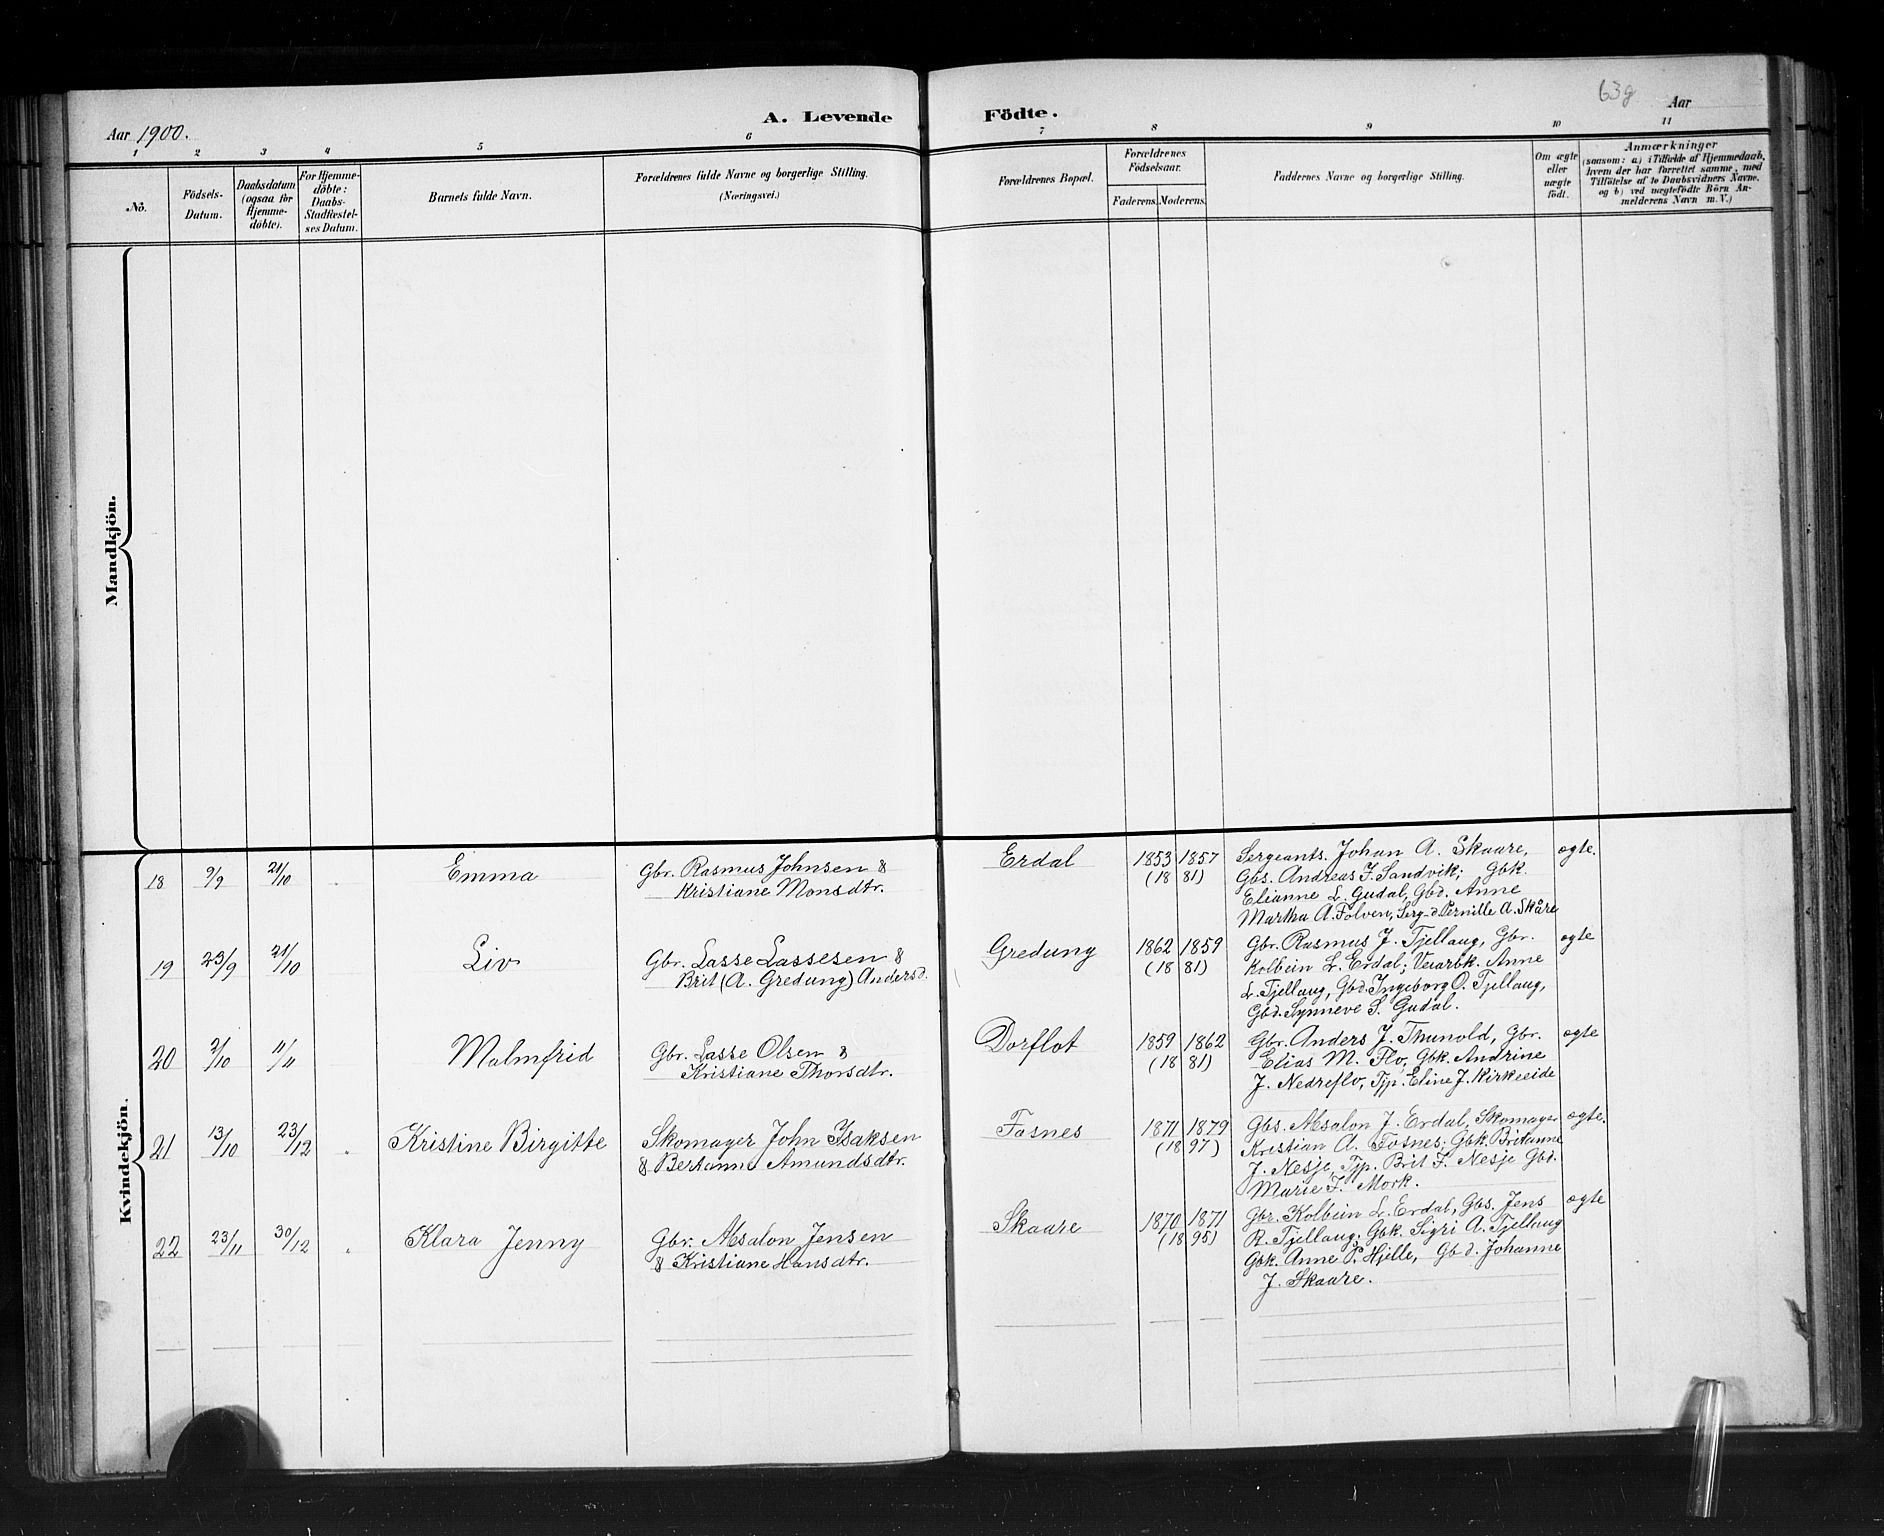 63g
Aar 1900.
A. Levende Födte.
Aar
1 2 3 4 5 6 7 8 9 10 11
No.
Födsels-
Datum.
Daabsdatum
(ogsaa for
Hjemme-
döbte).
For Hjemme-
döbte:
Daabs-
Stadfæstel-
ses Datum.
Barnets fulde Navn.
Forældrenes fulde Navne og borgerlige Stilling.
(Næringsvei.)
Forældrenes Bopæl.
Forældrenes
Födselsaar.
Faderens. Moderens.
Faddernes Navne og borgerlige Stilling.
Om ægte
eller
uægte
födt.
Anmærkninger
(saasom: a) i Tilfælde af Hjemmedaab,
hvem der har forrettet samme, med
Tilföielse af to Daabsvidners Navne.
og b) ved uægtefödte Börn An-
melderens Navn m. V.)
Mandkjön.
Kvindekjön.
18 9/9 21/10 Emma Gbr. Rasmus Johnsen & Erdal 1853 1857 Sergeants. Johan A. Skaare, ægte.
Kristiane Monsdtr. (18 81) Gbs. Andreas J. Sandvik; Gbk.
Elianne L. Gudal, Gbd. Anne
Martha A. Folven, Serg-d. Pernille A. Skåre
19 23/9 21/10 Liv Gbr. Lasse Lassesen & Gredung 1862 1859 Gbr. Rasmus J. Tjellaug, Gbr. ægte
Brit (A. Gredung) Andersd. (18 81) Kolbein L. Erdal; Veiarbk. Anne
L. Tjellaug, Gbd. Ingeborg O. Tjellaug,
Gbd. Synneve S. Gudal.
20 2/10 11/11 Malmfrid Gbr. Lasse Olsen & Dorflot 1859 1862 Gbr. Anders J. Thunold, Gbr. ægte
Kristiane Thorsdtr. (18 81) Elias M. Flo, Gbk. Andrine
J. Nedreflo, Tjp. Eline J. Kirkeeide
21 13/10 23/12 Kristine Birgitte Skomager John Isaksen Fosnes 1871 1879 Gbs. Absalon J. Erdal, Skomager ægte.
& Bertanne Amundsdtr. (18 97) Kristian A. Fosnes; Gbk. Britanne
J. Nesje, Tjp. Brit F. Nesje Gbd.
Marie J. Mork.
22 23/11 30/12 Klara Jenny Gbr. Absalon Jensen Skaare 1870 1871 Gbr. Kolbein L. Erdal, Gbs. Jens ægte
& Kristiane Hansdtr. (18 95) R. Tjellaug; Gbk. Sigri A. Tjellaug
Gbk. Anne P. Hjelle, Gbd. Johanne
J. Skaare.